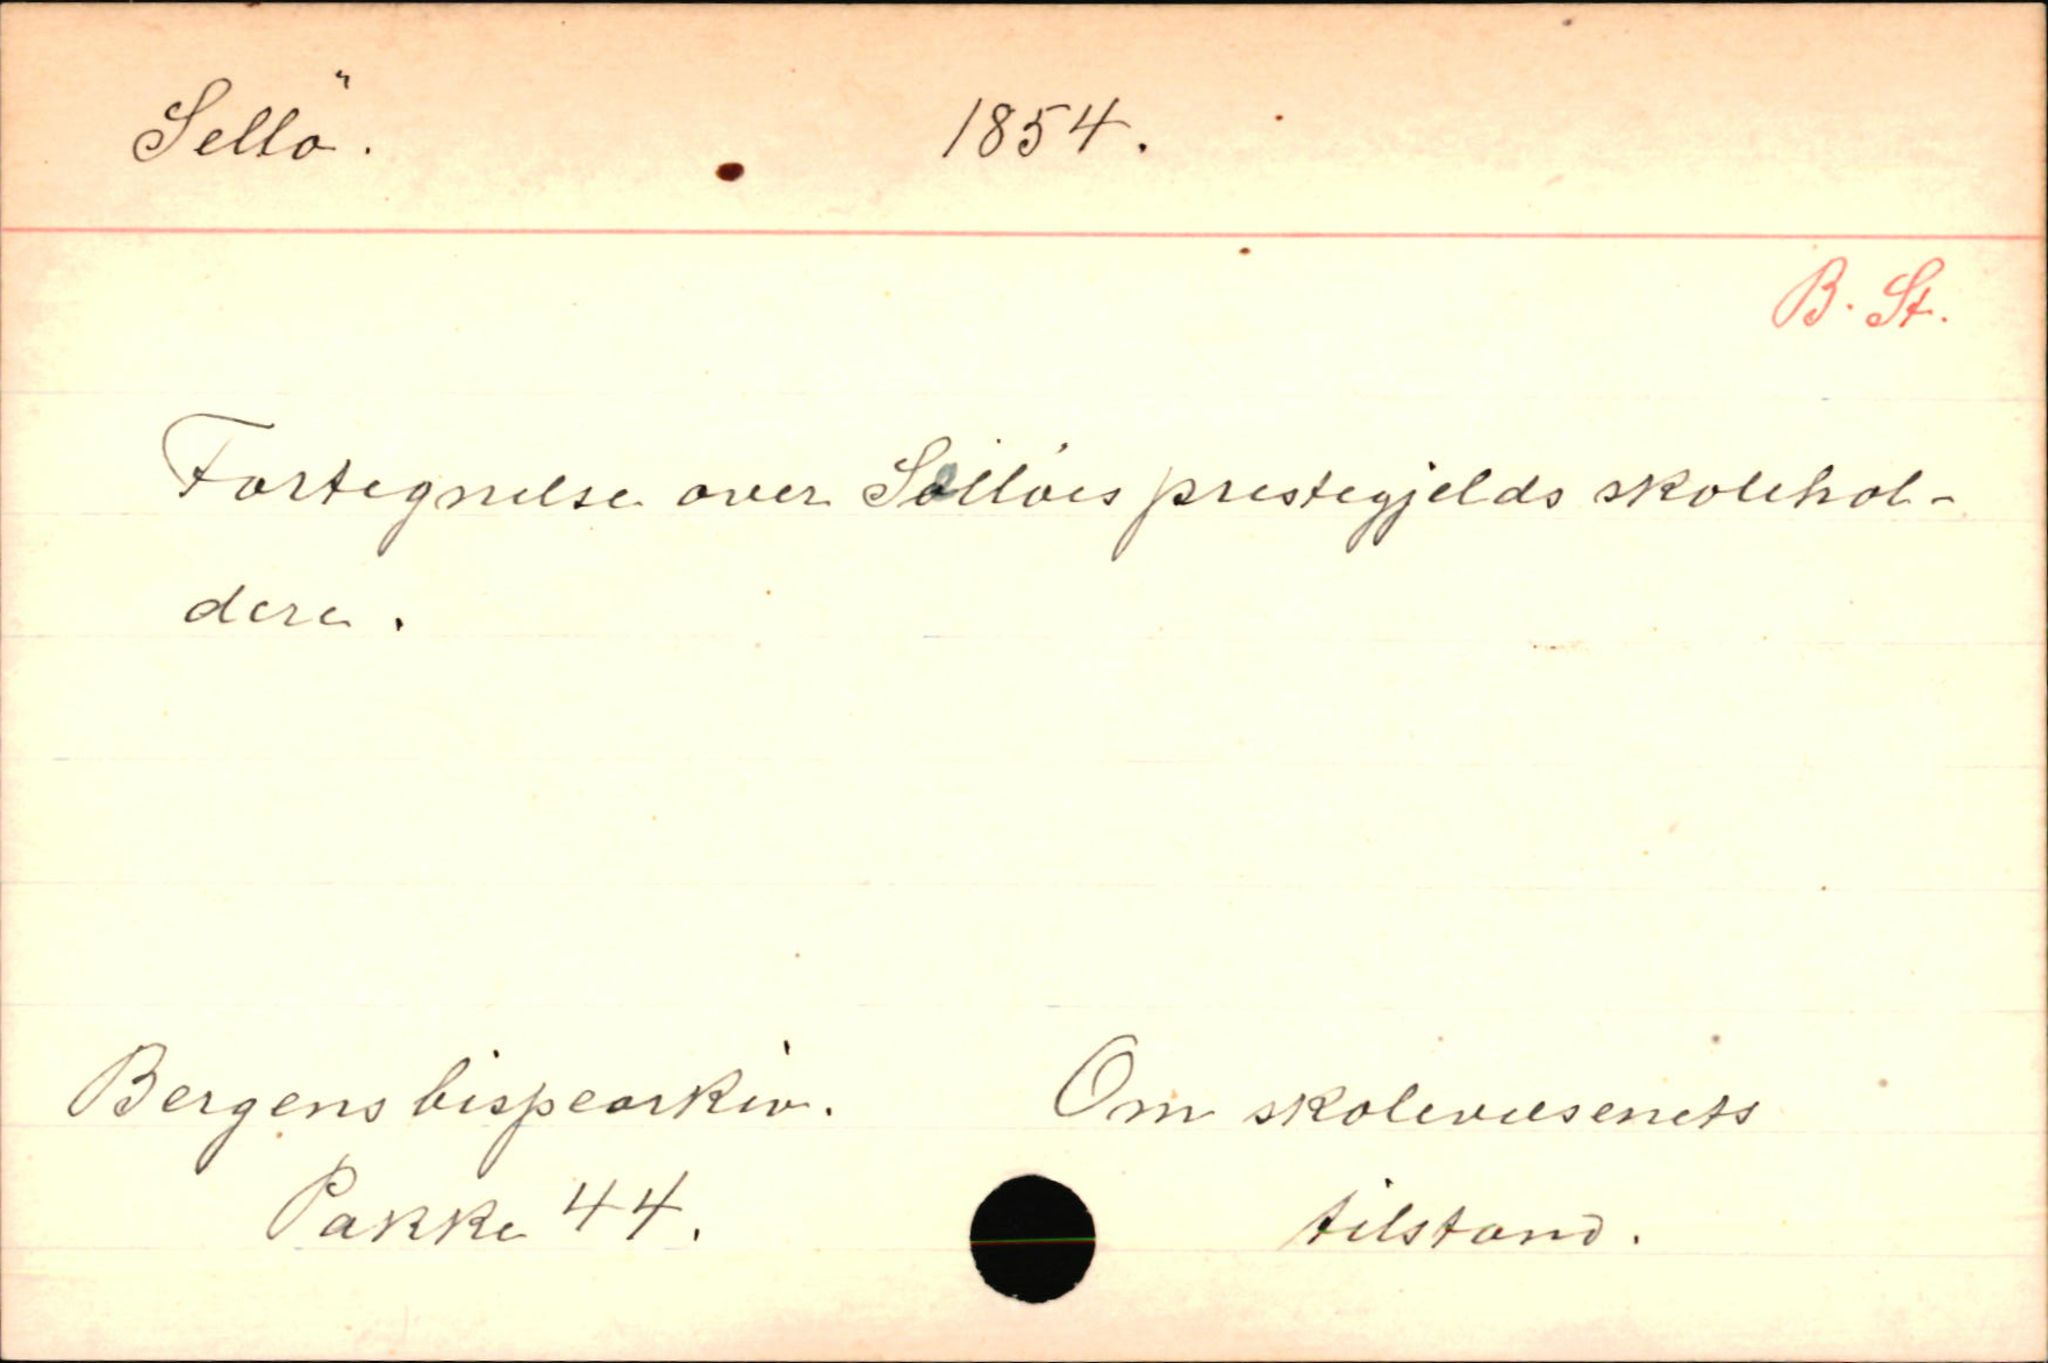 Sellö. 1854.
B. St.
Fortegnelse over Selløes prestegjelds skolehol-
dere.
Bergens bispearkiv. Om skolevæsenets
Pakke 44. tilstand.